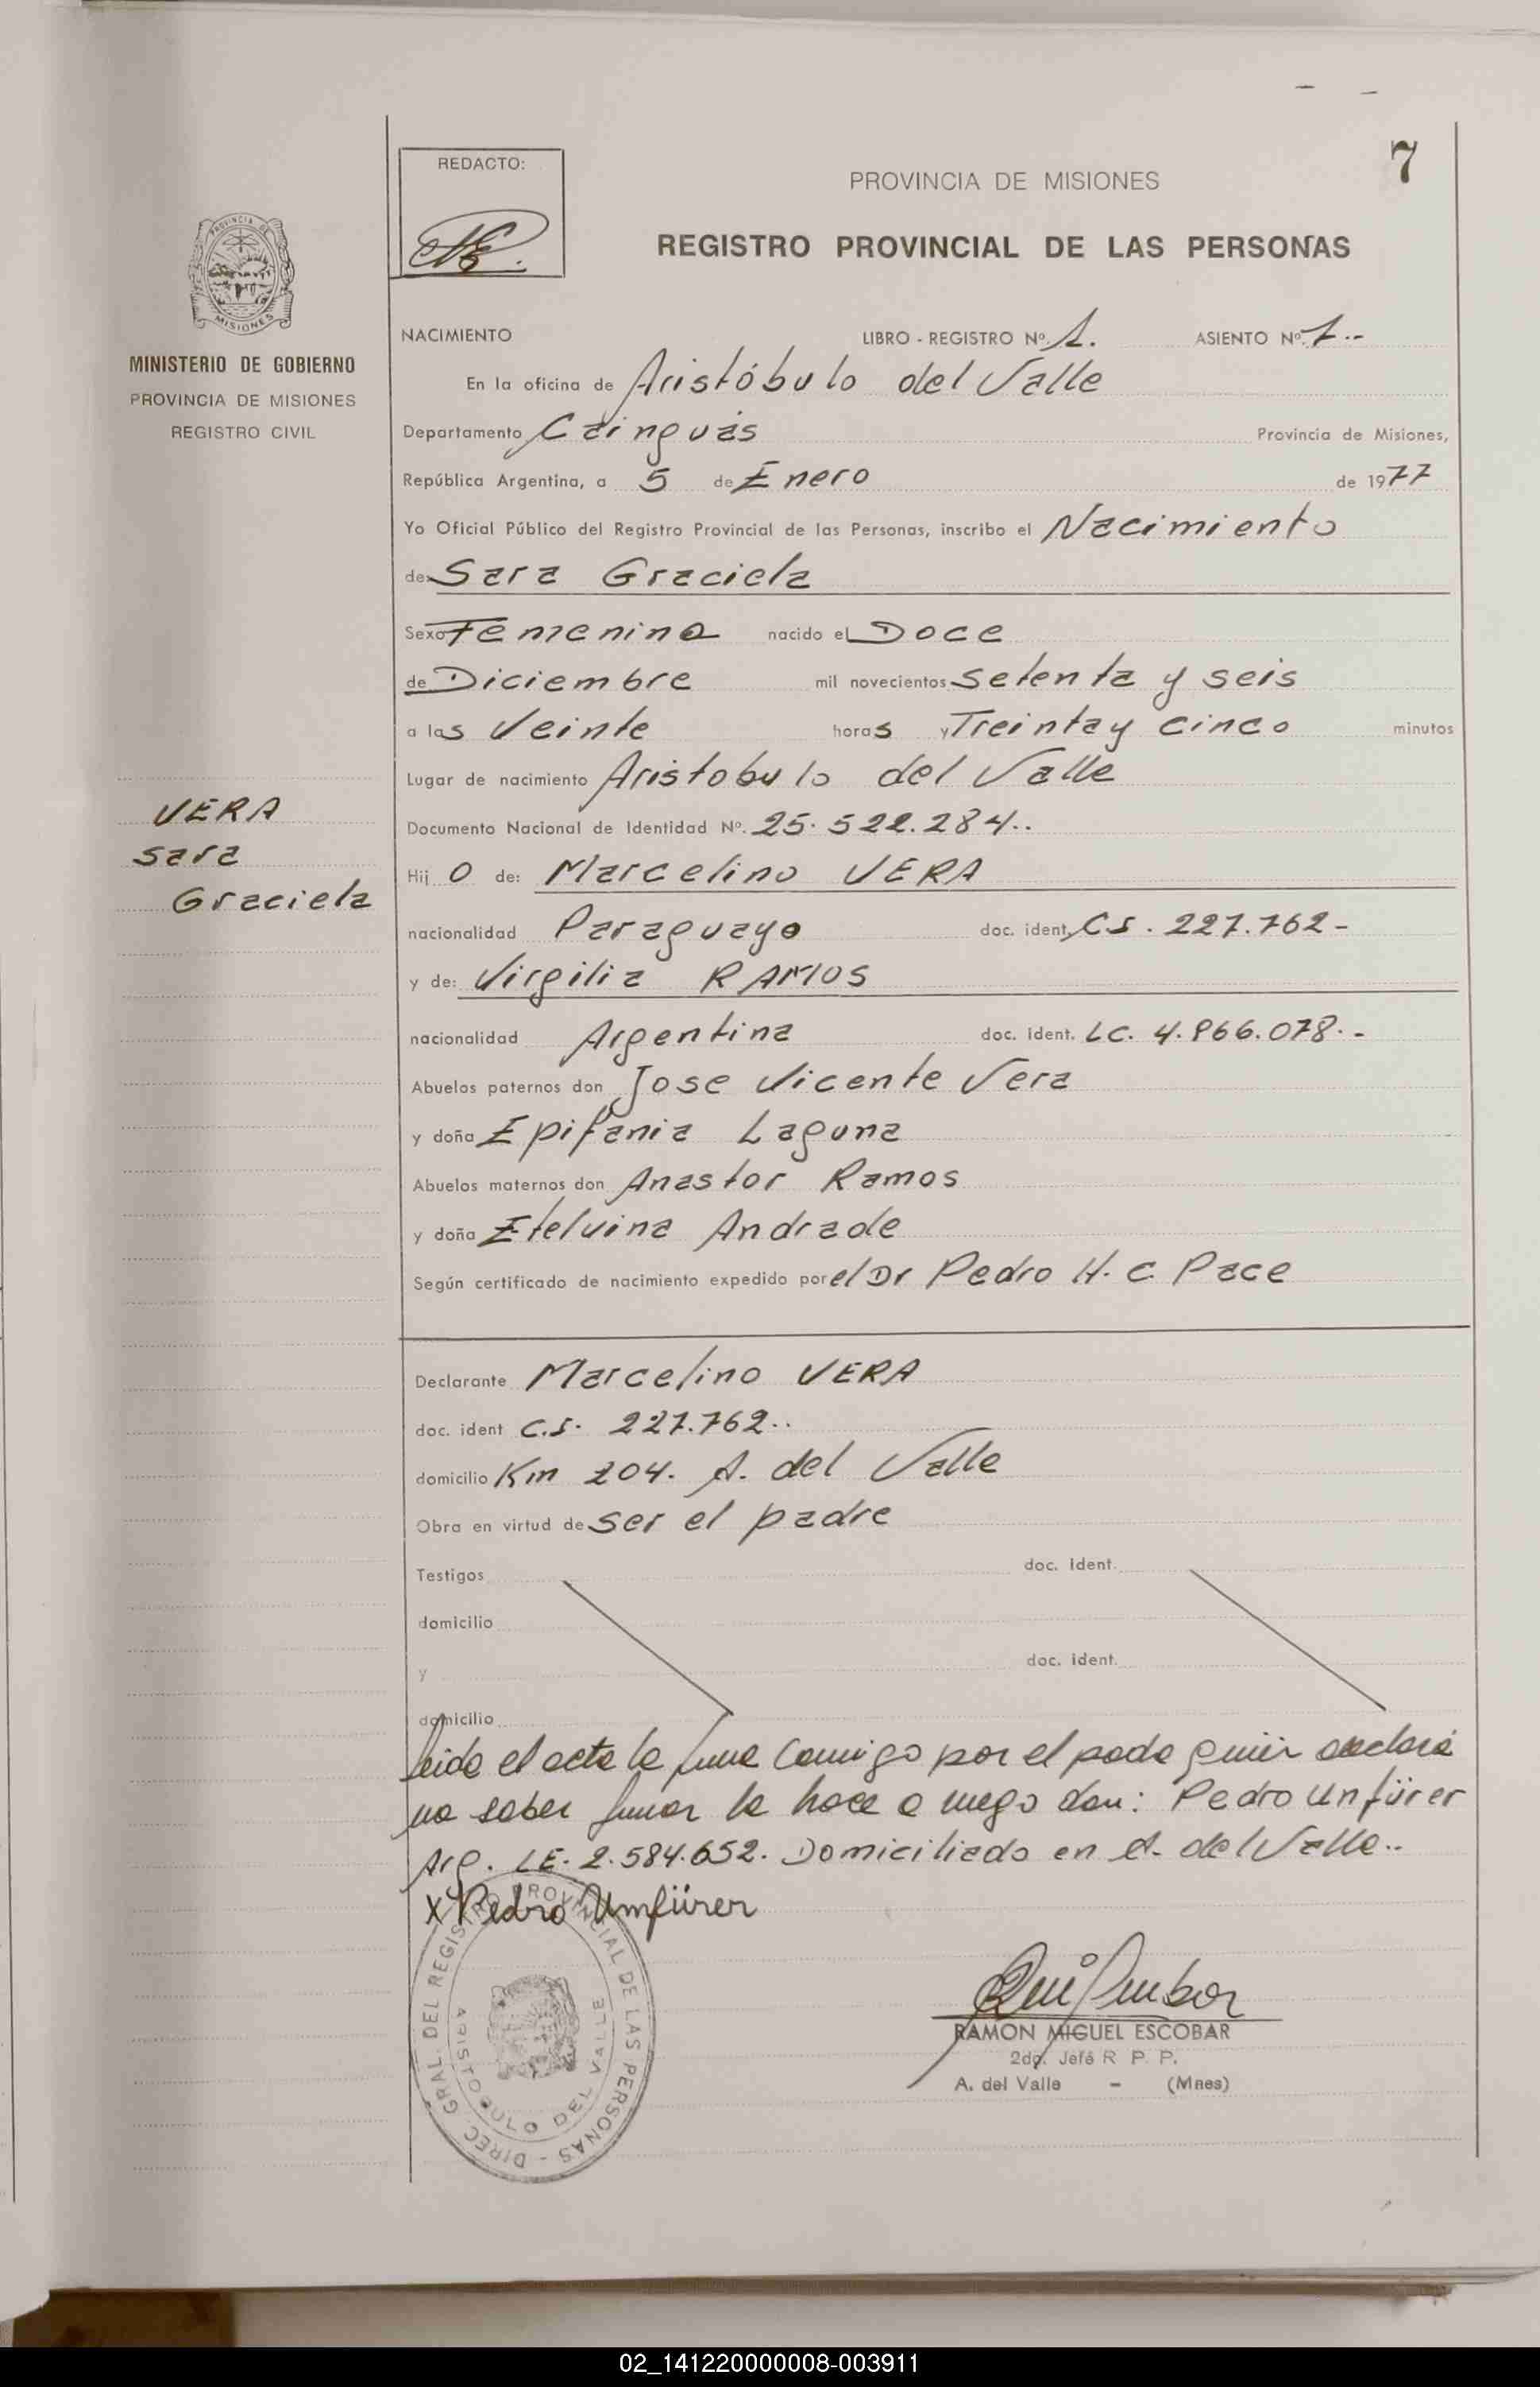 7
REDACTO:
PROVINCIA DE MISIONES
REGISTRO PROVINCIAL DE LAS PERSONAS
PROVINCIA DE
MISIONES
MINISTERIO DE GOBIERNO
PROVINCIA DE MISIONES
REGISTRO CIVIL
NACIMIENTO LIBRO - REGISTRO Nº 1. ASIENTO Nº 7.-
En la oficina de Aristóbulo del Valle
Departamento Cainguás Provincia de Misiones,
República Argentina, a 5 de Enero de 1977
Yo Oficial Público del Registro Provincial de las Personas, inscribo el Nacimiento
de Sara Graciela
Sexo Femenino nacido el Doce
de Diciembre mil novecientos setenta y seis
a las Veinte horas y Treinta y cinco minutos
Lugar de nacimiento Aristobulo del Valle
VERA
Sara
Graciela
Documento Nacional de Identidad Nº. 25.522.284..
Hij o de: Marcelino VERA
nacionalidad Paraguayo doc. ident. C.I. 227.762-
y de: Virgilia RAMOS
nacionalidad Argentina doc. ident. LC. 4.966.078.-
Abuelos paternos don Jose Vicente Vera
y doña Epifania Laguna
Abuelos maternos don Anastor Ramos
y doña Etelvina Andrade
Según certificado de nacimiento expedido por el Dr Pedro H. C. Pace
Declarante Marcelino VERA
doc. ident C.I. 227.762..
domicilio Km 204. A. del Valle
Obra en virtud de ser el padre
Testigos doc. ident.
domicilio
y doc. ident.
domicilio
leida el acta la firma conmigo por el padre quien declara
no saber firmar lo hace a ruego don: Pedro Unfürer
Arg. LE. 2.584.652. Domiciliado en A. del Valle..
x Pedro Umfürer
DIREC. GRAL. DEL REGISTRO PROVINCIAL DE LAS PERSONAS -
ARISTOBULO DEL VALLE
RAMON MIGUEL ESCOBAR
2do. Jefe R P. P.
A. del Valle - (Mnes)
02_141220000008-003911